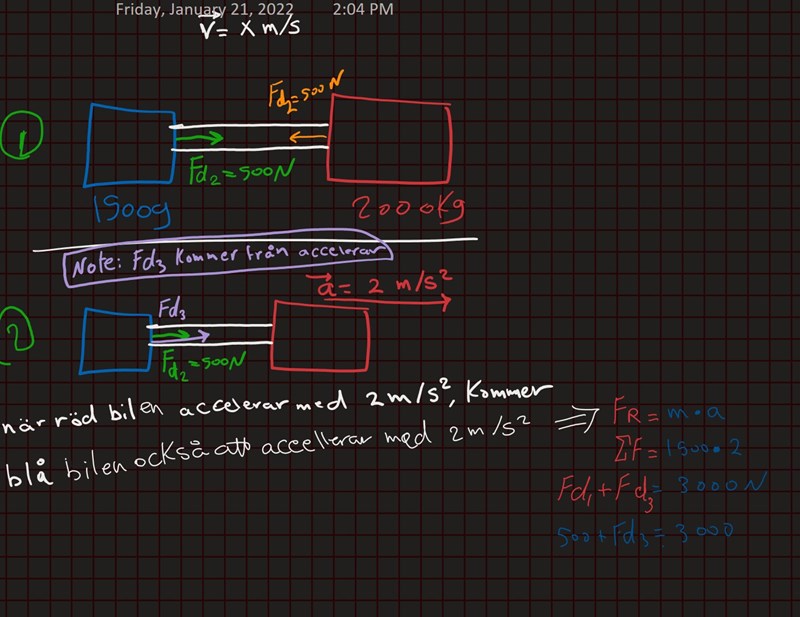 Friday, January 21, 2022 2:04 PM
v = x m/s
1
Fd₂=500N
Fd₂=500N
1500g
2000kg
Note: Fd₃ kommer från accelerar
a = 2 m/s²
2
Fd₃
Fd₂=500N
när röd bilen accelerar med 2m/s², kommer
blå bilen också att accellerar med 2m/s² ⇒
FR = m·a
ΣF = 1500·2
Fd₁ + Fd₃ = 3000N
500+Fd₃ = 3000